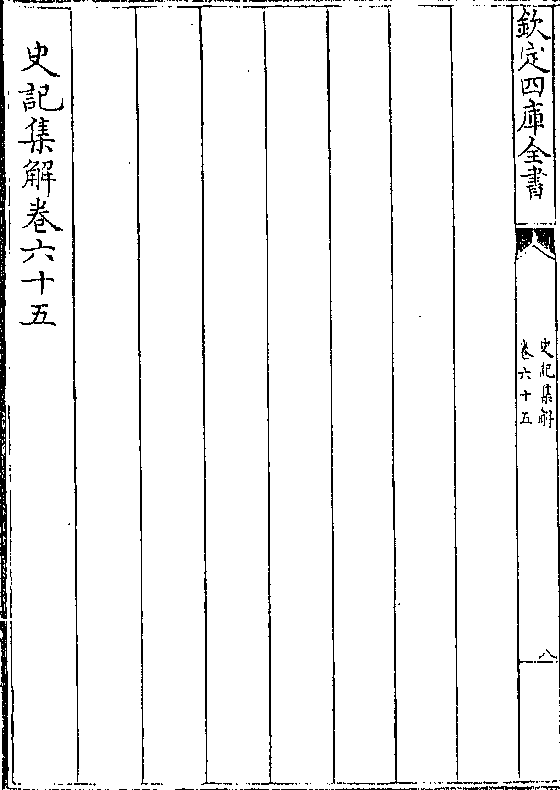 欽定四庫全書
史記集解
卷六十五
八
史記集解卷六十五